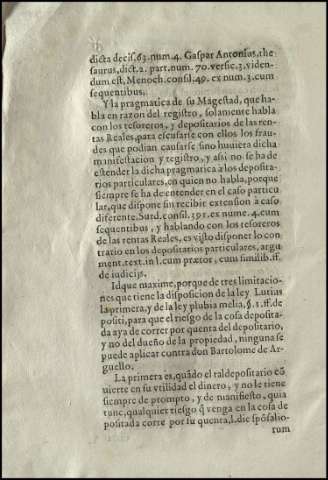 dicta decis. 63. num. 4. Gaspar Antonius, the
saurus, dict. 2. part. num. 70. versic. 3. viden-
dum est, Menoch. consil. 49. ex num. 3. cum
sequentibus.
Y la pragmatica de su Magestad, que ha-
bla en razon del registro, solamente habla
con los tesoreros, y depositarios de las ren
tas Reales, para escusarse con ellos los frau
des que podian causarse sino huuiera dicha
manifestacion y registro, y assi no se ha de
estender la dicha pragmatica à los deposita-
rios particulares, en quien no habla, porque
siempre se ha de entender en el caso particu
lar, que dispone sin recibir extension à caso
diferente. Surd. consil. 391. ex nume. 4. cum
sequentibus, y hablando con los tesoreros
de las rentas Reales, es visto disponer lo con
trario en los depositarios particulares, argu
ment. text. in l. cum prætor, cum similib. ff.
de iudicijs.
Idque maxime, porque de tres limitacio-
nes que tiene la disposicion de la ley Lutius
la primera, y de la ley plubia melia, §. 1. ff. de
positi, para que el riesgo de la cosa deposita-
da aya de correr por quenta del depositario,
y no del dueño de la propiedad, ninguna se
puede aplicar contra don Bartolome de Ar-
guello.
La primera es, quãdo el tal depositario cõ
uierte en su vtilidad el dinero, y no le tiene
siempre de prompto, y de manifiesto, quia
tunc, qualquier riesgo q̃ venga en la cosa de
positada corre por su quenta, l. die spõsalio-
rum